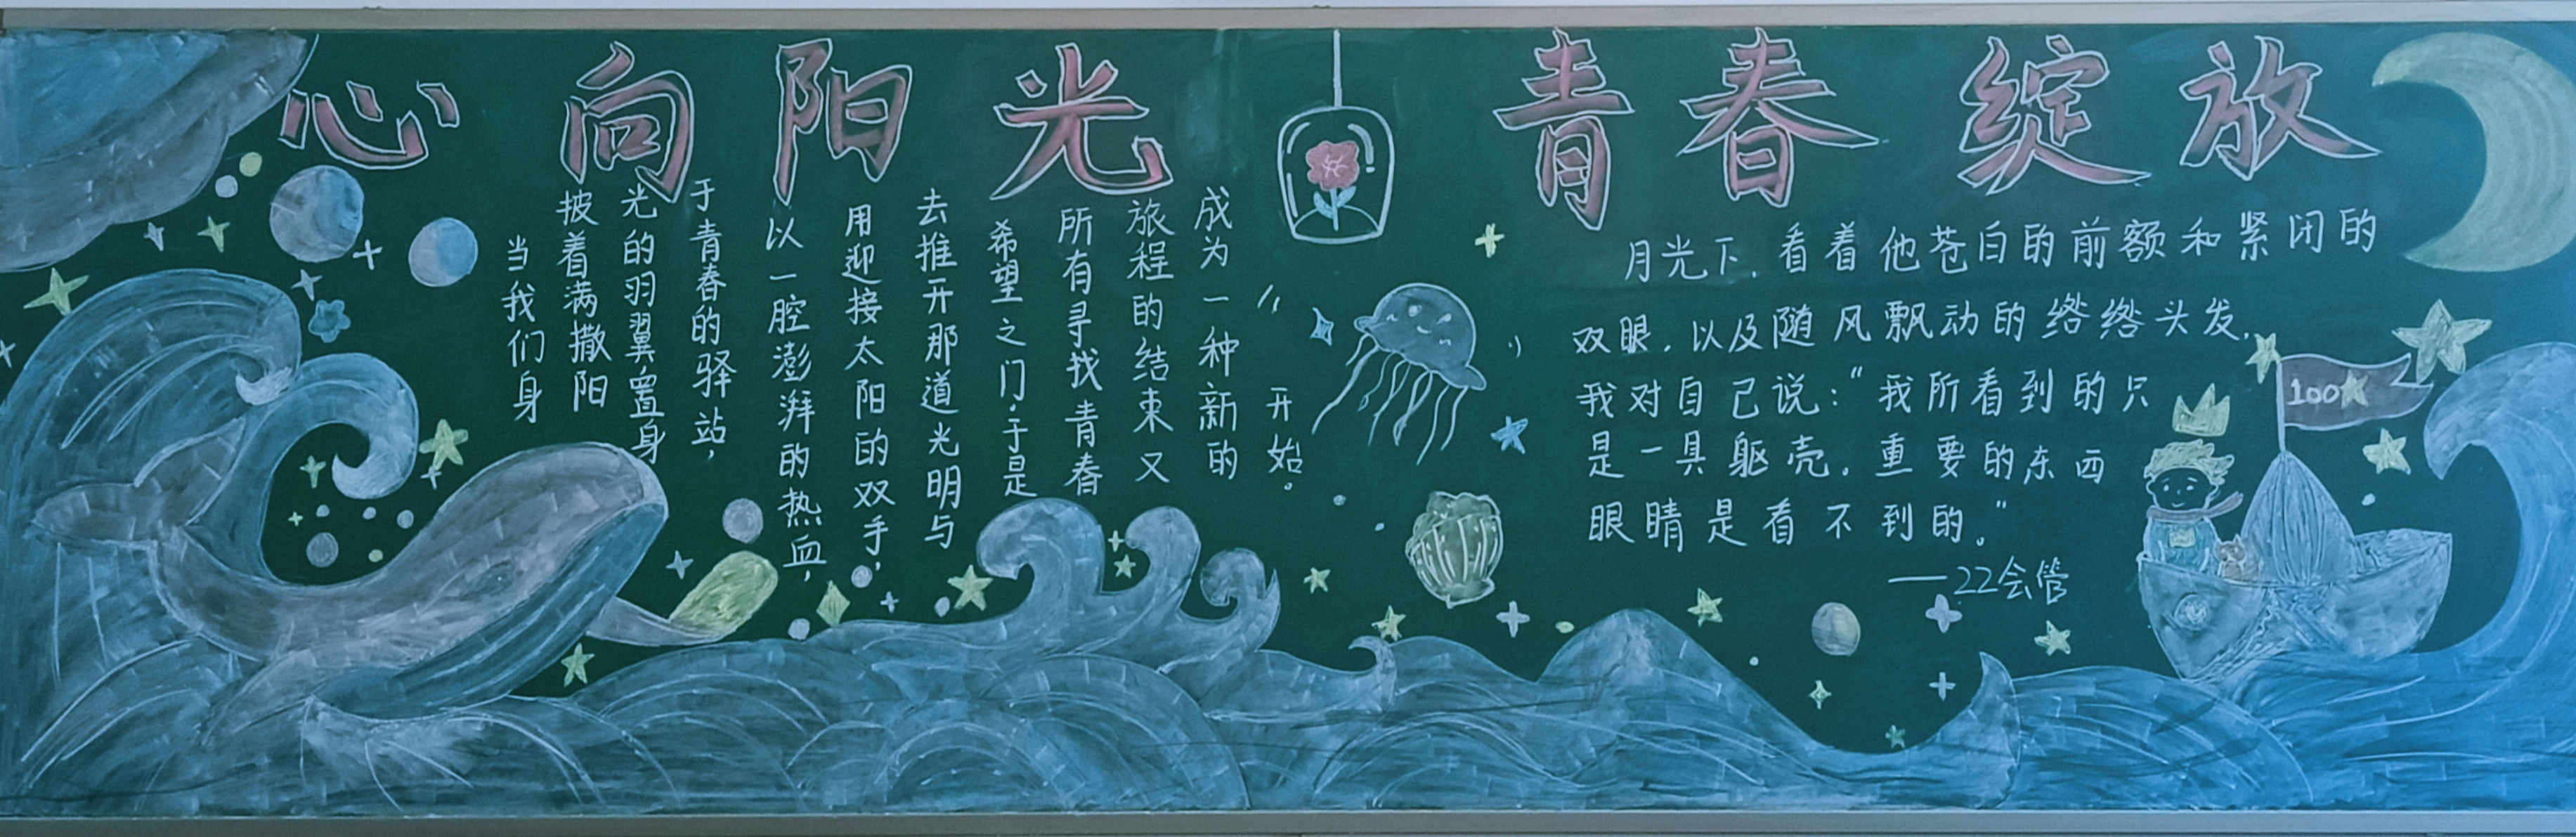 心向阳光
青春绽放
当我们身
披着满撒阳
光的羽翼置身
于青春的驿站,
以一腔澎湃的热血,
用迎接太阳的双手,
去推开那道光明与
希望之门.于是
所有寻找青春
旅程的结束又
成为一种新的
开始。
月光下,看着他苍白的前额和紧闭的
双眼,以及随风飘动的绺绺头发,
我对自己说:“我所看到的只
是一具躯壳。重要的东西
眼睛是看不到的。”
——22会管
100